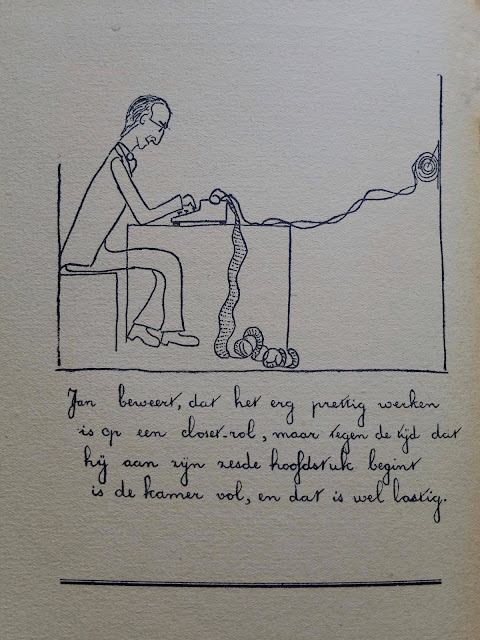 Jan beweert, dat het erg prettig werken
is op een closet-rol, maar tegen de tijd dat
hij aan zijn zesde hoofdstuk begint
is de kamer vol, en dat is wel lastig.